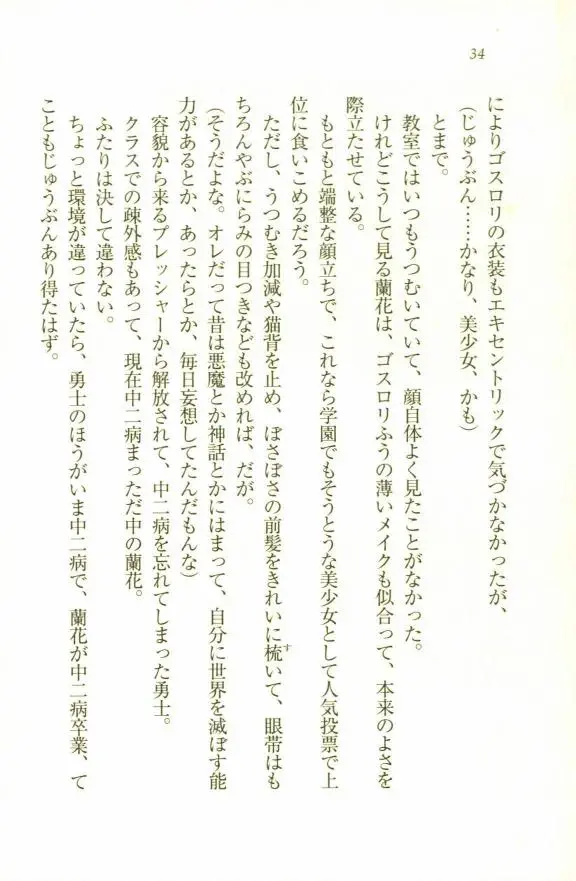 34
によりゴスロリの衣装もエキセントリックで気づかなかったが、
(じゅうぶん……かなり、美少女、かも)
とまで。
教室ではいつもうつむいていて、顔自体よく見たことがなかった。
けれどこうして見る蘭花は、ゴスロリふうの薄いメイクも似合って、本来のよさを
際立たせている。
もともと端整な顔立ちで、これなら学園でもそうとうな美少女として人気投票で上
位に食いこめるだろう。
ただし、うつむき加減や猫背を止め、ぼさぼさの前髪をきれいに梳いて、眼帯はも
ちろんやぶにらみの目つきなども改めれば、だが。
(そうだよな。オレだって昔は悪魔とか神話とかにはまって、自分に世界を滅ぼす能
力があるとか、あったらとか、毎日妄想してたんだもんな)
容貌から来るプレッシャーから解放されて、中二病を忘れてしまった勇士。
クラスでの疎外感もあって、現在中二病まっただ中の蘭花。
ふたりは決して違わない。
ちょっと環境が違っていたら、勇士のほうがいま中二病で、蘭花が中二病卒業、て
こともじゅうぶんあり得たはず。
す